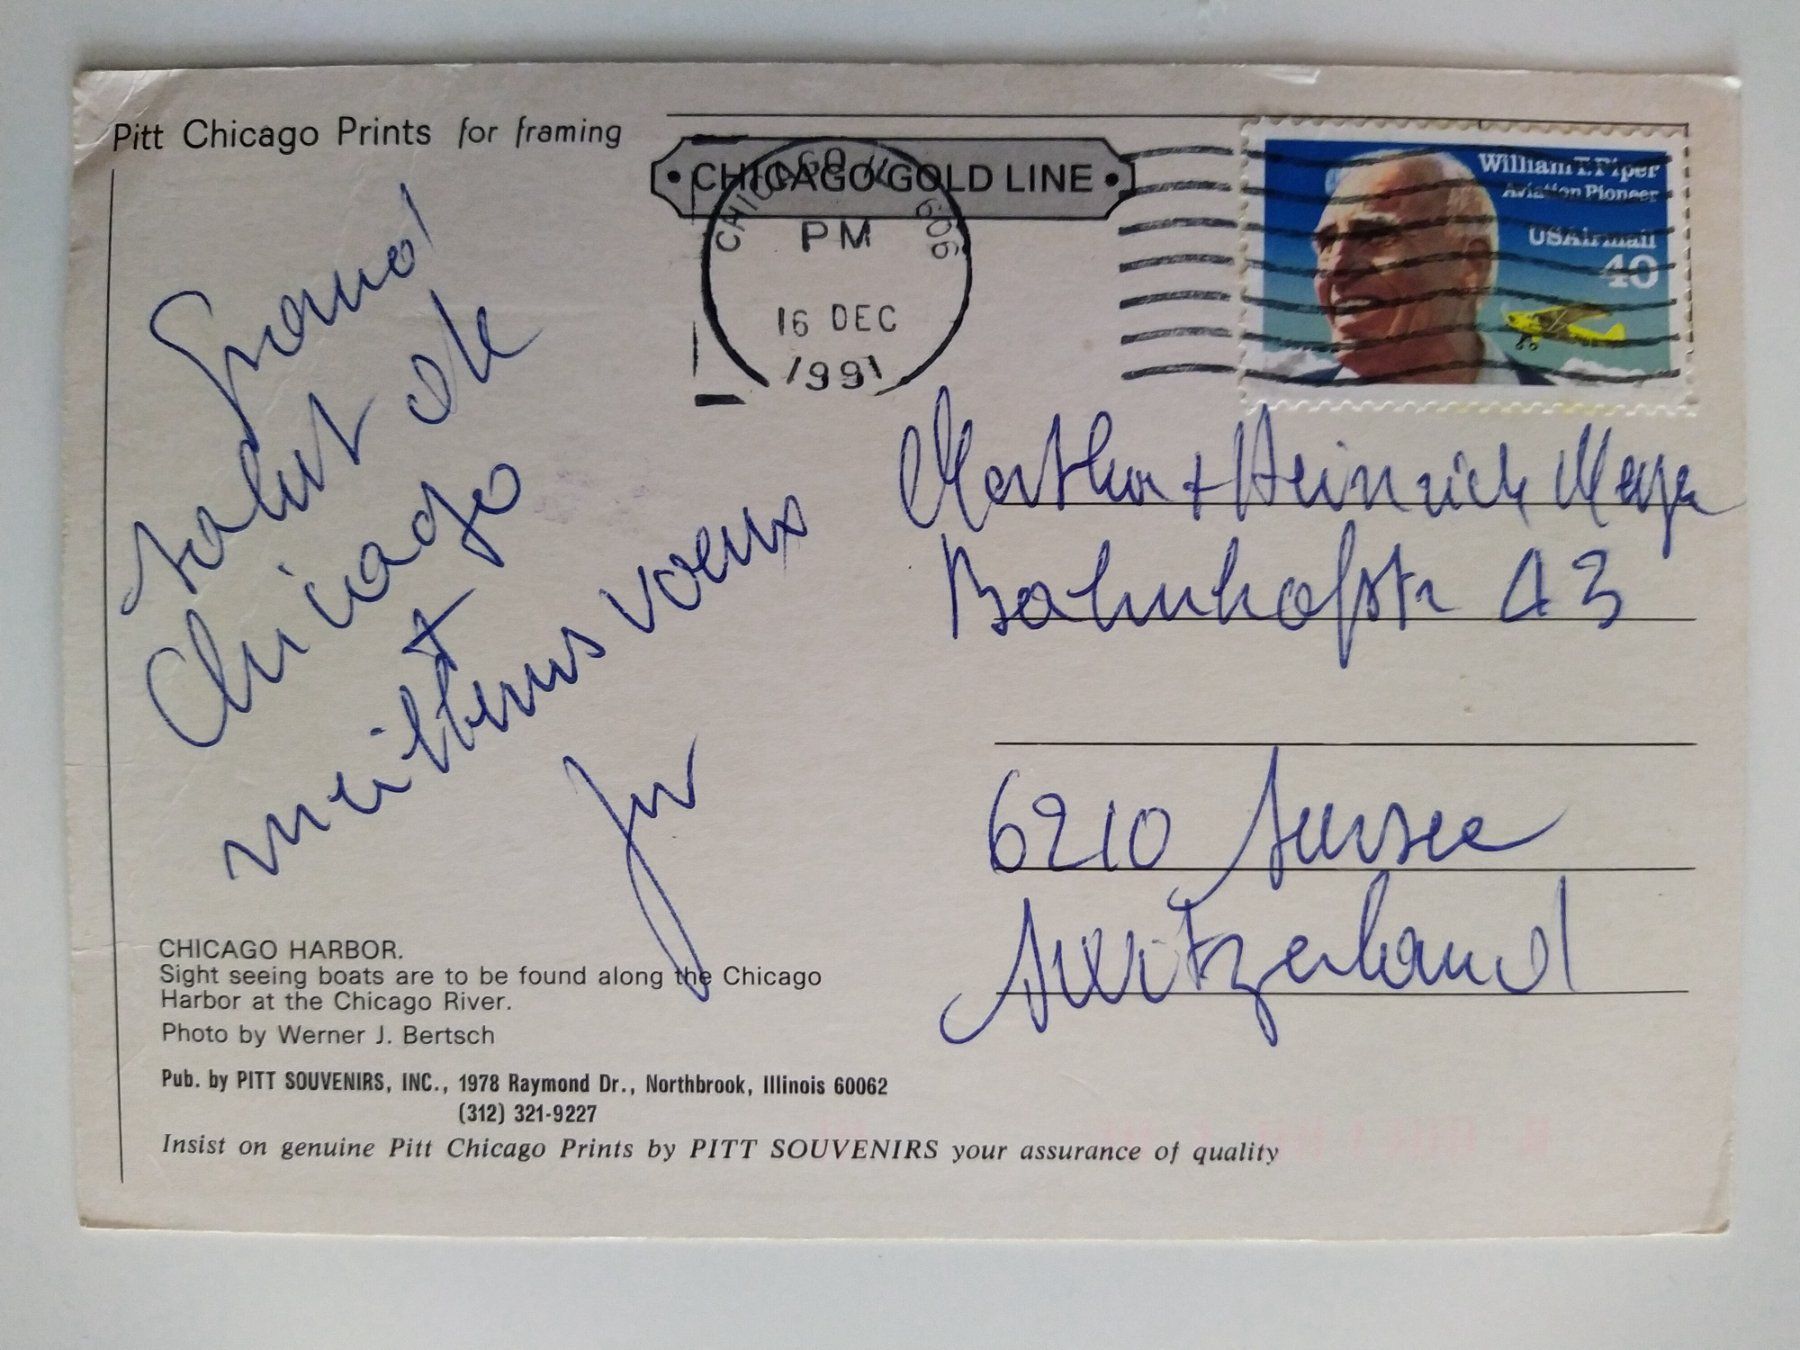 Pitt Chicago Prints for framing
• CHICAGO GOLD LINE •
CHICAGO IL 606
PM
16 DEC
1991
William T. Piper
Aviation Pioneer
USAirmail
40
Grand
salut de
Chicago
+
meilleurs voeux
Martha + Heinrich Meyer
Bahnhofstr 43
6210 Sursee
Switzerland
CHICAGO HARBOR.
Sight seeing boats are to be found along the Chicago
Harbor at the Chicago River.
Photo by Werner J. Bertsch
Pub. by PITT SOUVENIRS, INC., 1978 Raymond Dr., Northbrook, Illinois 60062
(312) 321-9227
Insist on genuine Pitt Chicago Prints by PITT SOUVENIRS your assurance of quality